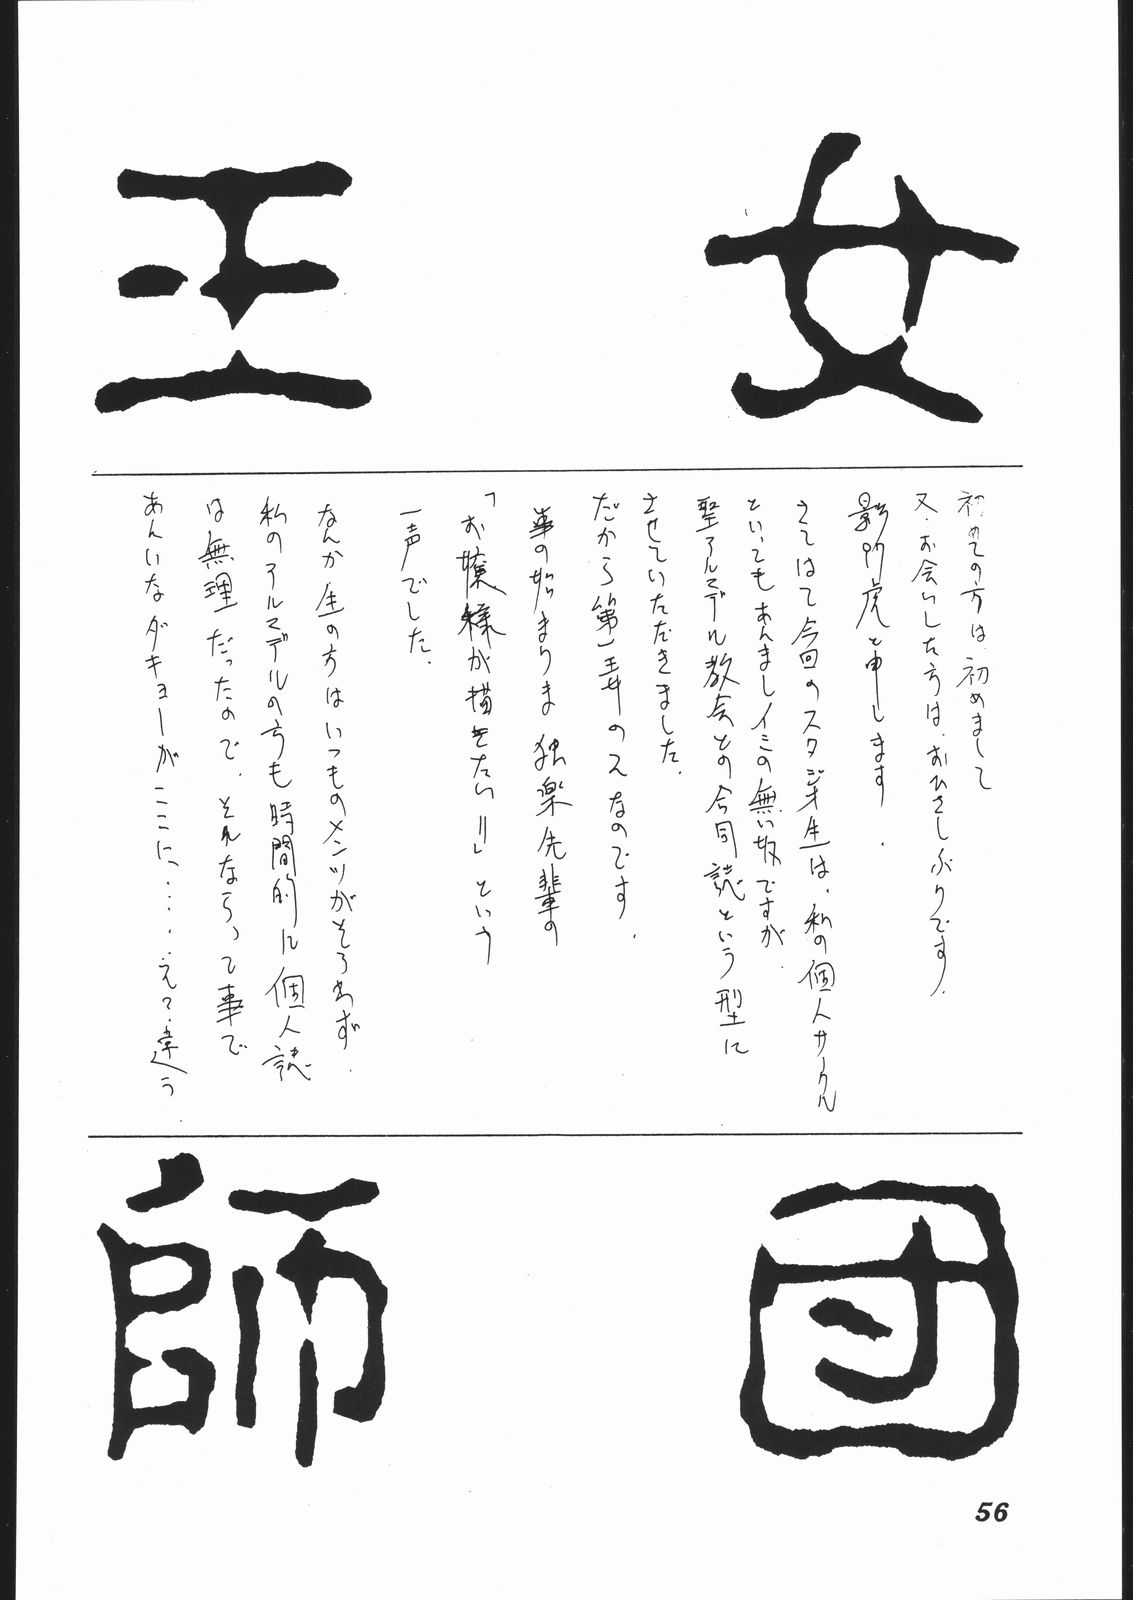 王女
初めての方は、初めまして
又、お会いした方は、おひさしぶりです、
影虎と申します.
さてはて今回のスタジオ生は、私の個人サークル
といってもあんましイミの無い奴ですが、
聖アルマデル教会との合同誌という型に
させていただきました.
だから第一王女のスなのです.
事の始まりは独楽先輩の
「お嬢様が描きたい!!」という
一声でした.
なんか生の方はいつものメンツがそろわず.
私のアルマデルの方も時間的に個人誌
は無理だったので、それならって事で
あんいなダキョーがここに、……えっ、違う.
師団
56